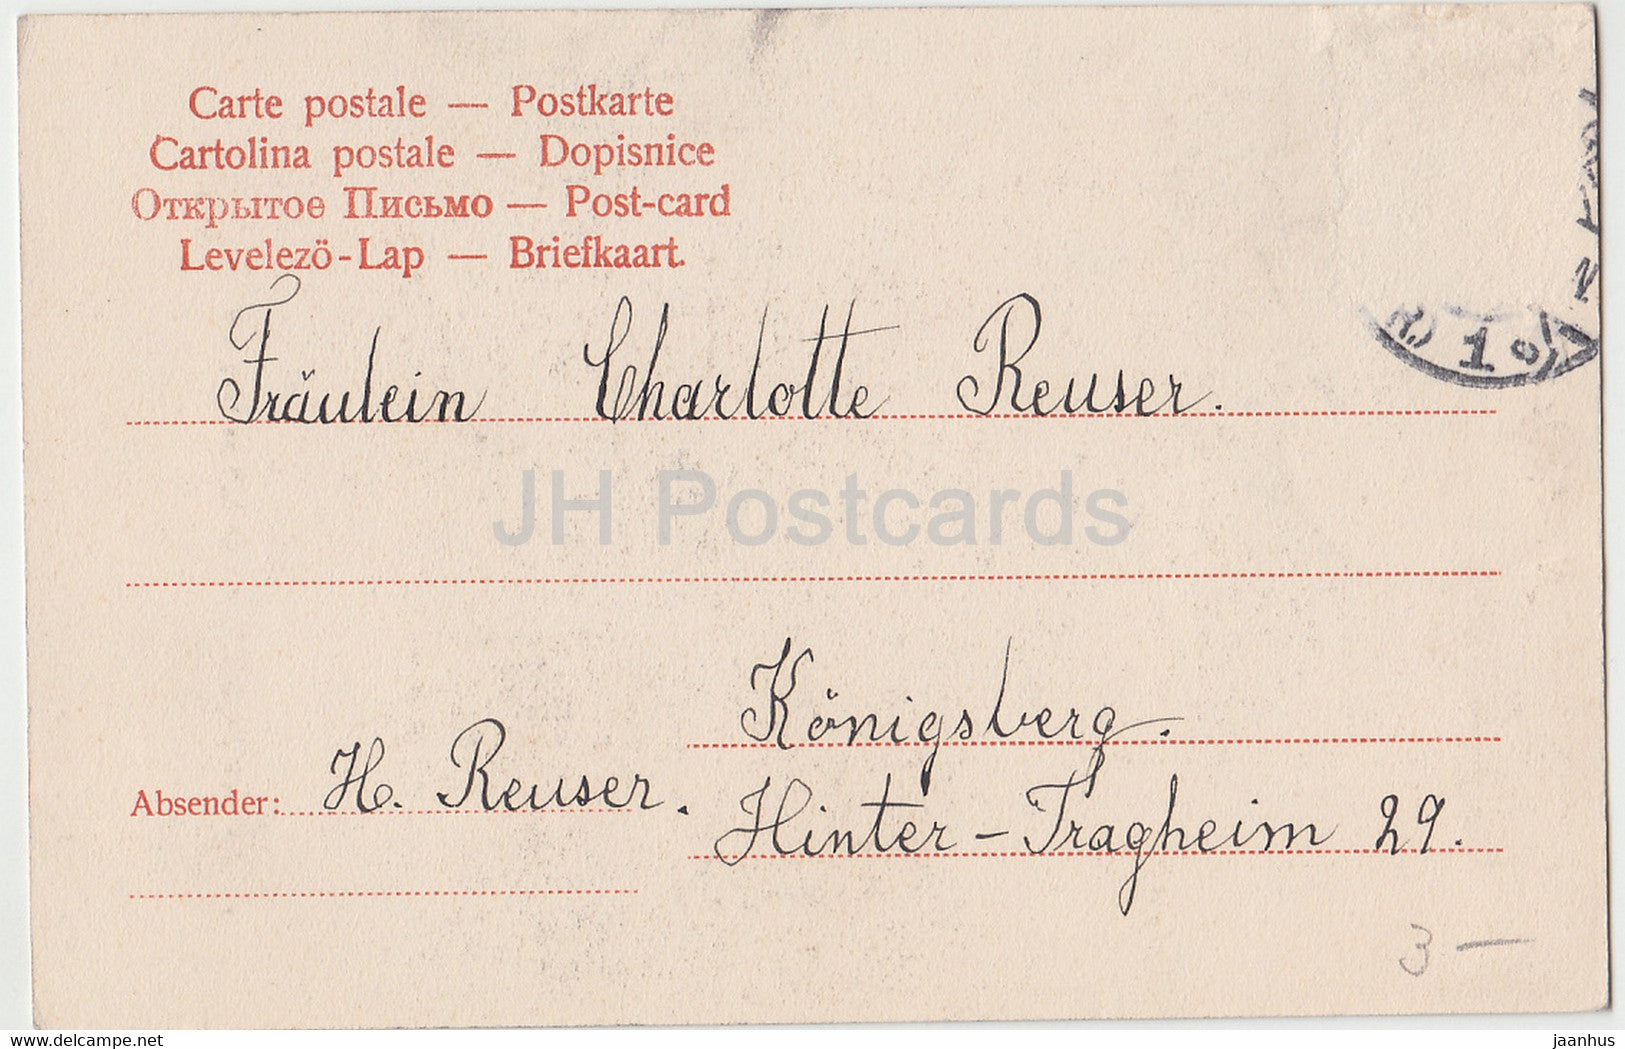 Carte postale — Postkarte
Cartolina postale — Dopisnice
Открытое Письмо — Post-card
Levelezö-Lap — Briefkaart.
Fräulein Charlotte Reuser.
JH Postcards
Königsberg.
Absender: H. Reuser.
Hinter-Tragheim 29.
3 —
delcampe.net
jaanhus